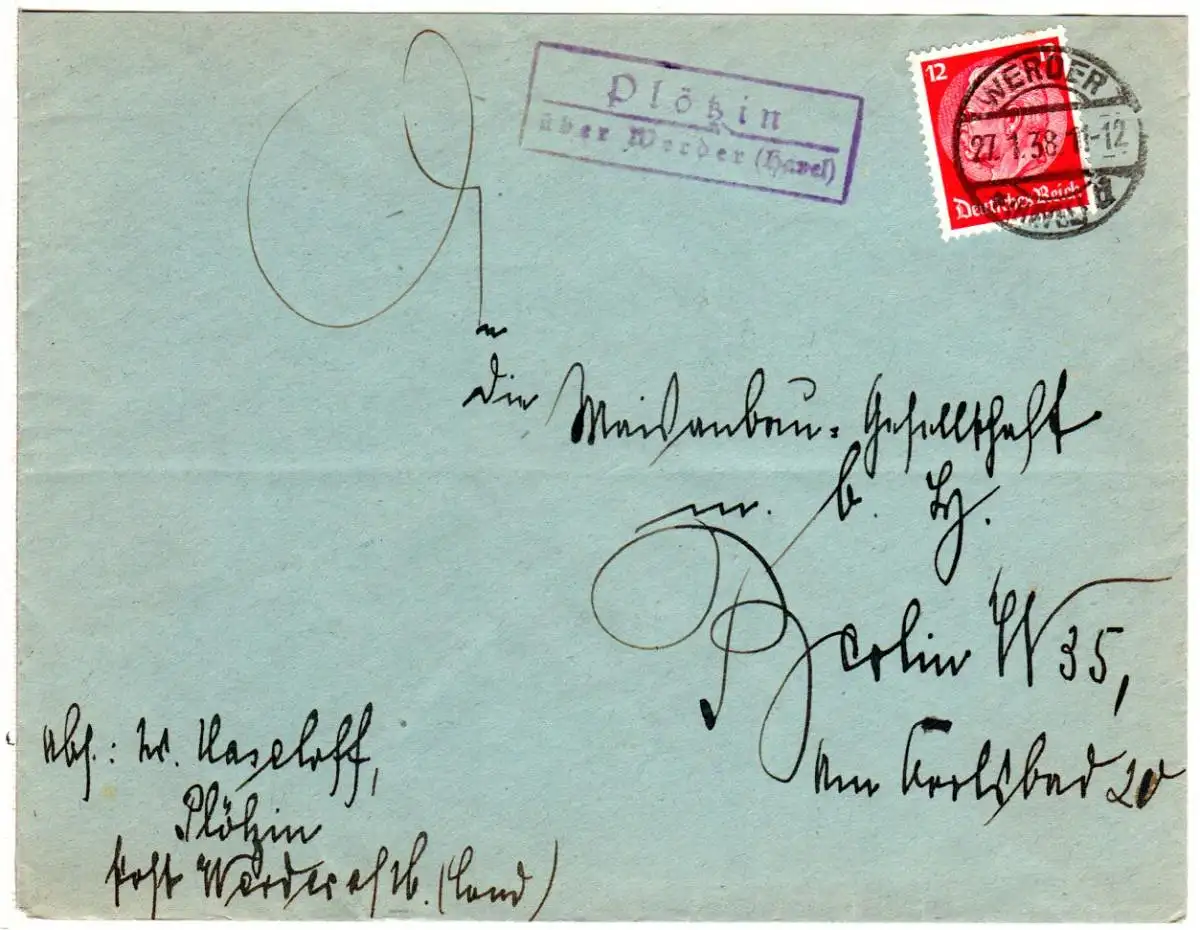 Plötzin
über Werder (Havel)
12
WERDER
27.1.38 11-12
(HAVEL) d
Deutsches Reich
An
die Maisanbau-Gesellschaft
m. b. H.
Berlin W 35,
Am Karlsbad 20
Abs.: W. Haseloff,
Plötzin
Post Werder (Land)